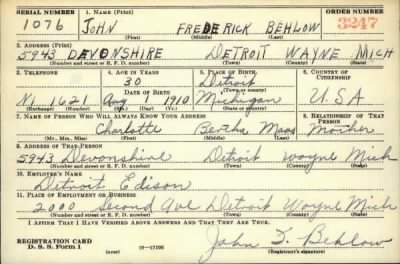 SERIAL NUMBER 1. NAME (Print) ORDER NUMBER
1076 JOHN FREDERICK BEHLOW 3247
(First) (Middle) (Last)
2. ADDRESS (Print)
5943 DEVONSHIRE DETROIT WAYNE MICH
(Number and street or R. F. D. number) (Town) (County) (State)
3. TELEPHONE 4. AGE IN YEARS 5. PLACE OF BIRTH 6. COUNTRY OF CITIZENSHIP
30 Detroit
DATE OF BIRTH (Town or county)
Ni 1621 Aug 1 1910 Michigan U.S.A
(Exchange) (Number) (Mo.) (Day) (Yr.) (State or country)
7. NAME OF PERSON WHO WILL ALWAYS KNOW YOUR ADDRESS 8. RELATIONSHIP OF THAT PERSON
Charlotte Bertha Maas Mother
(Mr., Mrs., Miss) (First) (Middle) (Last)
9. ADDRESS OF THAT PERSON
5943 Devonshire Detroit Wayne Mich
(Number and street or R. F. D. number) (Town) (County) (State)
10. EMPLOYER'S NAME
Detroit Edison
11. PLACE OF EMPLOYMENT OR BUSINESS
2000 Second Ave Detroit Wayne Mich
(Number and street or R. F. D. number) (Town) (County) (State)
I AFFIRM THAT I HAVE VERIFIED ABOVE ANSWERS AND THAT THEY ARE TRUE.
REGISTRATION CARD
D. S. S. Form 1 (over) 16—17105 John F. Behlow
(Registrant's signature)